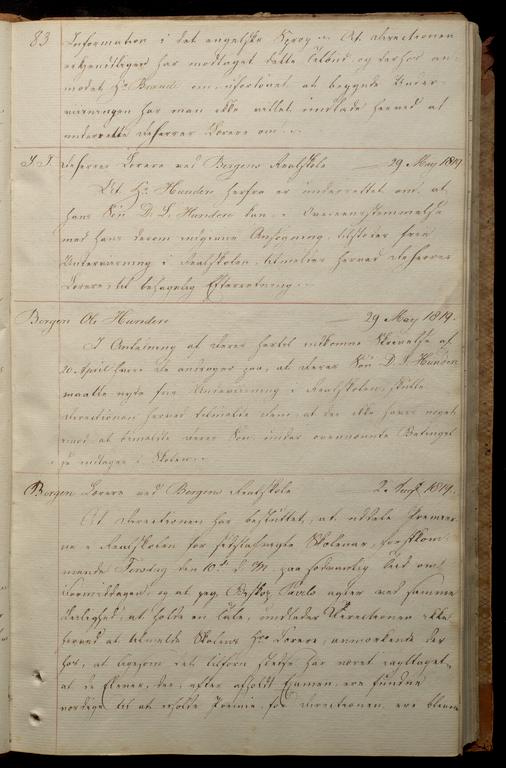 83 Information i det engelske Sprog. At Directionen
har modtaget dette Tilbud, og derhos an-
modet Hr Brandt om, ufortøvet, at begynde Under-
viisningen har man ikke villet undlade herved at
underrette De Herrer Lærere om.
De Herrer Lærere ved Bergens Realskole 29 May 1819
At Hr Hunden herfra er underrettet om, at
hans Søn D. S. Hunden kan, i Overeensstemmelse
med hans derom indgivne Ansøgning, tilstaaes frie
Underviisning i Realskolen, tilmeldes herved De Herrer
Lærere til behagelig Efterretning.
Borgen Ole Hunden 29 May 1819.
I Anledning af Deres hertil indkomne Skrivelse af
20 April hvori De andrager paa, at Deres Søn D. S. Hunden
maatte nyde frie Underviisning i Realskolen, skulle
Directionen herved tilmelde Dem, at der ikke haves noget
imod, at Deres Søn under ovennævnte Betingel-
se indtages i Skolen.
Lærere ved Bergens Realskole 2 1819.
At Directionen har besluttet, at uddele Præmier-
ne i Realskolen for sidstafvigte Skoleaar, førstkom-
mende Tirsdag den 10de d. M. paa sædvanlig Tid om
Formiddagen, og at jeg, Biskop Pavels agter ved samme
Leilighed, at holde en Tale, undlader Directionen ikke
herved at tilmelde Skolens Hrr Lærere, anmærkende der-
hos, at ligesom det tilforn stedse har været iagttaget,
at de Elever, der, efter afholdt Examen, ere fundne
værdige til at erholde Præmie, for Directionen ere blevne